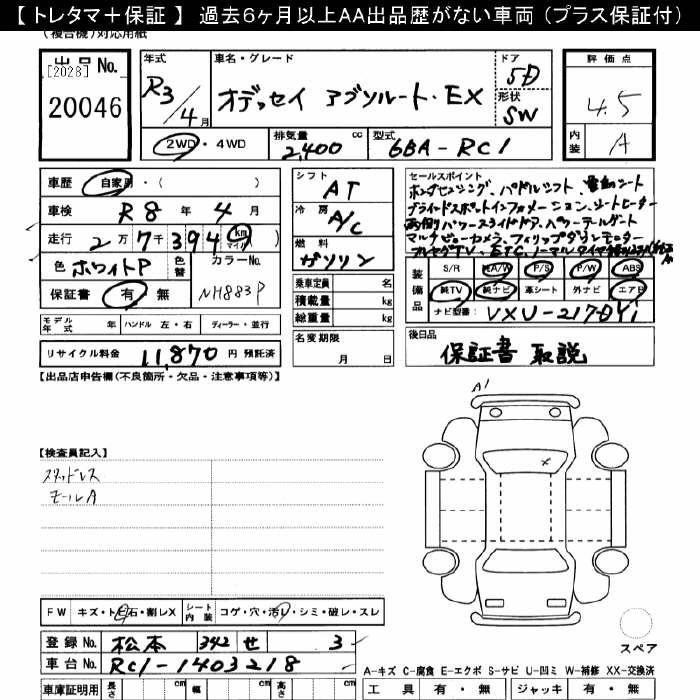 【 トレタマ＋保証 】 過去6ヶ月以上AA出品歴がない車両（プラス保証付）
(複合機)対応用紙
出品 No.
[2028]
20046
年式 R3/4月
車名・グレード オデッセイ アブソルート・EX
ドア 5D
形状 SW
2WD・4WD
排気量 2,400 cc
型式 6BA-RC1
評価点 4.5
内装 A
車歴 自家用・( )
車検 R8 年 4 月
走行 2万7千394 (km マイル)
色 ホワイトP 色替 カラーNo. NH883P
保証書 有・無
シフト AT
冷房 A/C
燃料 ガソリン
乗車定員 名
積載量 kg
総重量 kg
名変期限 月 日
セールスポイント
ホンダセンシング、パドルシフト、電動シート
ブラインドスポットインフォメーション、シートヒーター
両側パワースライドドア、パワーテールゲート
マルチビューカメラ、フィリップダウンモニター
フルセグTV、ETC、ノーマルタイヤ
装備品 S/R (A/W) P/S P/W ABS
純TV 純ナビ 革シート 外ナビ エアB
ナビ型番 VXU-217DYi
モデル年式 年 ハンドル 左・右 ディーラー・並行
リサイクル料金 11,870 円 預託済
後日品 保証書 取説
【出品店申告欄(不良箇所・欠品・注意事項等)】
A1
【検査員記入】
スタッドレス
モールA
FW キズ・ト石・割レX シート内装 コゲ・穴・汚レ・シミ・破レ・スレ
登録No. 松本 342 せ 3
車台No. RC1-1403218
スペア
A-キズ C-腐食 E-エクボ S-サビ U-凹ミ W-補修 XX-交換済
車庫証明用 長さ cm 幅 cm 高さ cm
工具 有・無 ジャッキ 有・無